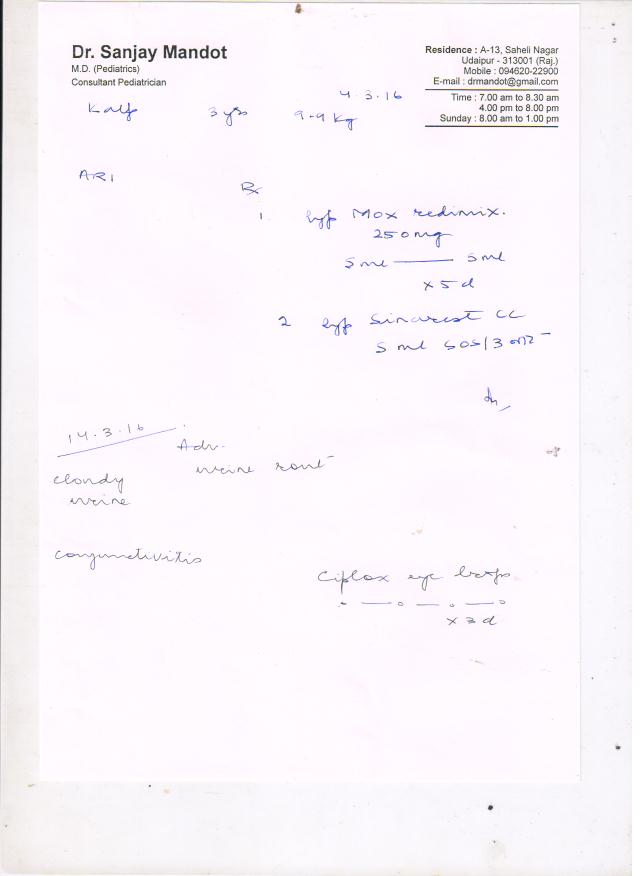 Dr. Sanjay Mandot
M.D. (Pediatrics)
Consultant Pediatrician
Residence : A-13, Saheli Nagar
Udaipur - 313001 (Raj.)
Mobile : 094620-22900
E-mail : drmandot@gmail.com
Time : 7.00 am to 8.30 am
4.00 pm to 8.00 pm
Sunday : 8.00 am to 1.00 pm
4.3.16
3 yrs 9.9 Kg
ARI
Rx
1. Syp Mox redimix.
250mg
5 ml —— 5 ml
x 5 d
2 Syp Sinarest CC
5 ml SOS/3
14.3.16
Adv.
urine rout
cloudy
urine
conjunctivitis
Ciplox eye drops
x 3 d